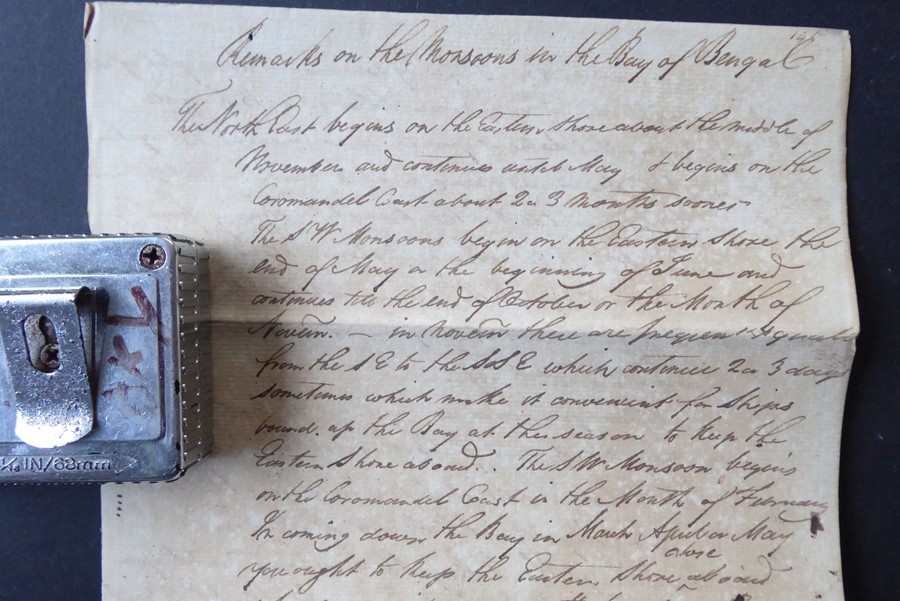 145
Remarks on the Monsoons in the Bay of Bengal
The North East begins on the Eastern Shore about the middle of
November and continues until May & begins on the
Coromandel Cost about 2 or 3 Months sooner
The S W Monsoons begin on the Eastern Shore the
end of May or the beginning of June and
continues till the end of October or the Month of
Novem. — in Novem there are frequent Squalls
from the S E to the SSE which continue 2 or 3 days
sometimes which make it convenient for Ships
bound up the Bay at this season to keep the
Eastern Shore aboard. The SW Monsoon begins
on the Coromandel Cost in the Month of
In coming down the Bay in March April or May
close
you ought to keep the Eastern Shore aboard
IN/68mm